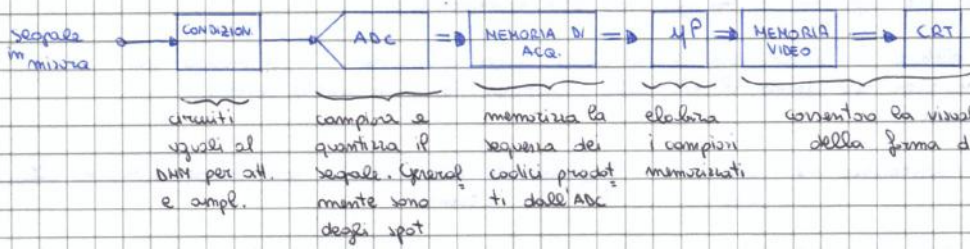 segnale
in misura
CONDIZION.
ADC
MEMORIA DI
ACQ.
μP
MEMORIA
VIDEO
CRT
circuiti
uguali al
DMM per att.
e ampl.
campiona e
quantizza il
segnale. General
mente sono
degli spot
memorizza la
sequenza dei
codici prodot
ti dall'ADC
elabora
i campioni
memorizzati
consentono la visual
della forma d